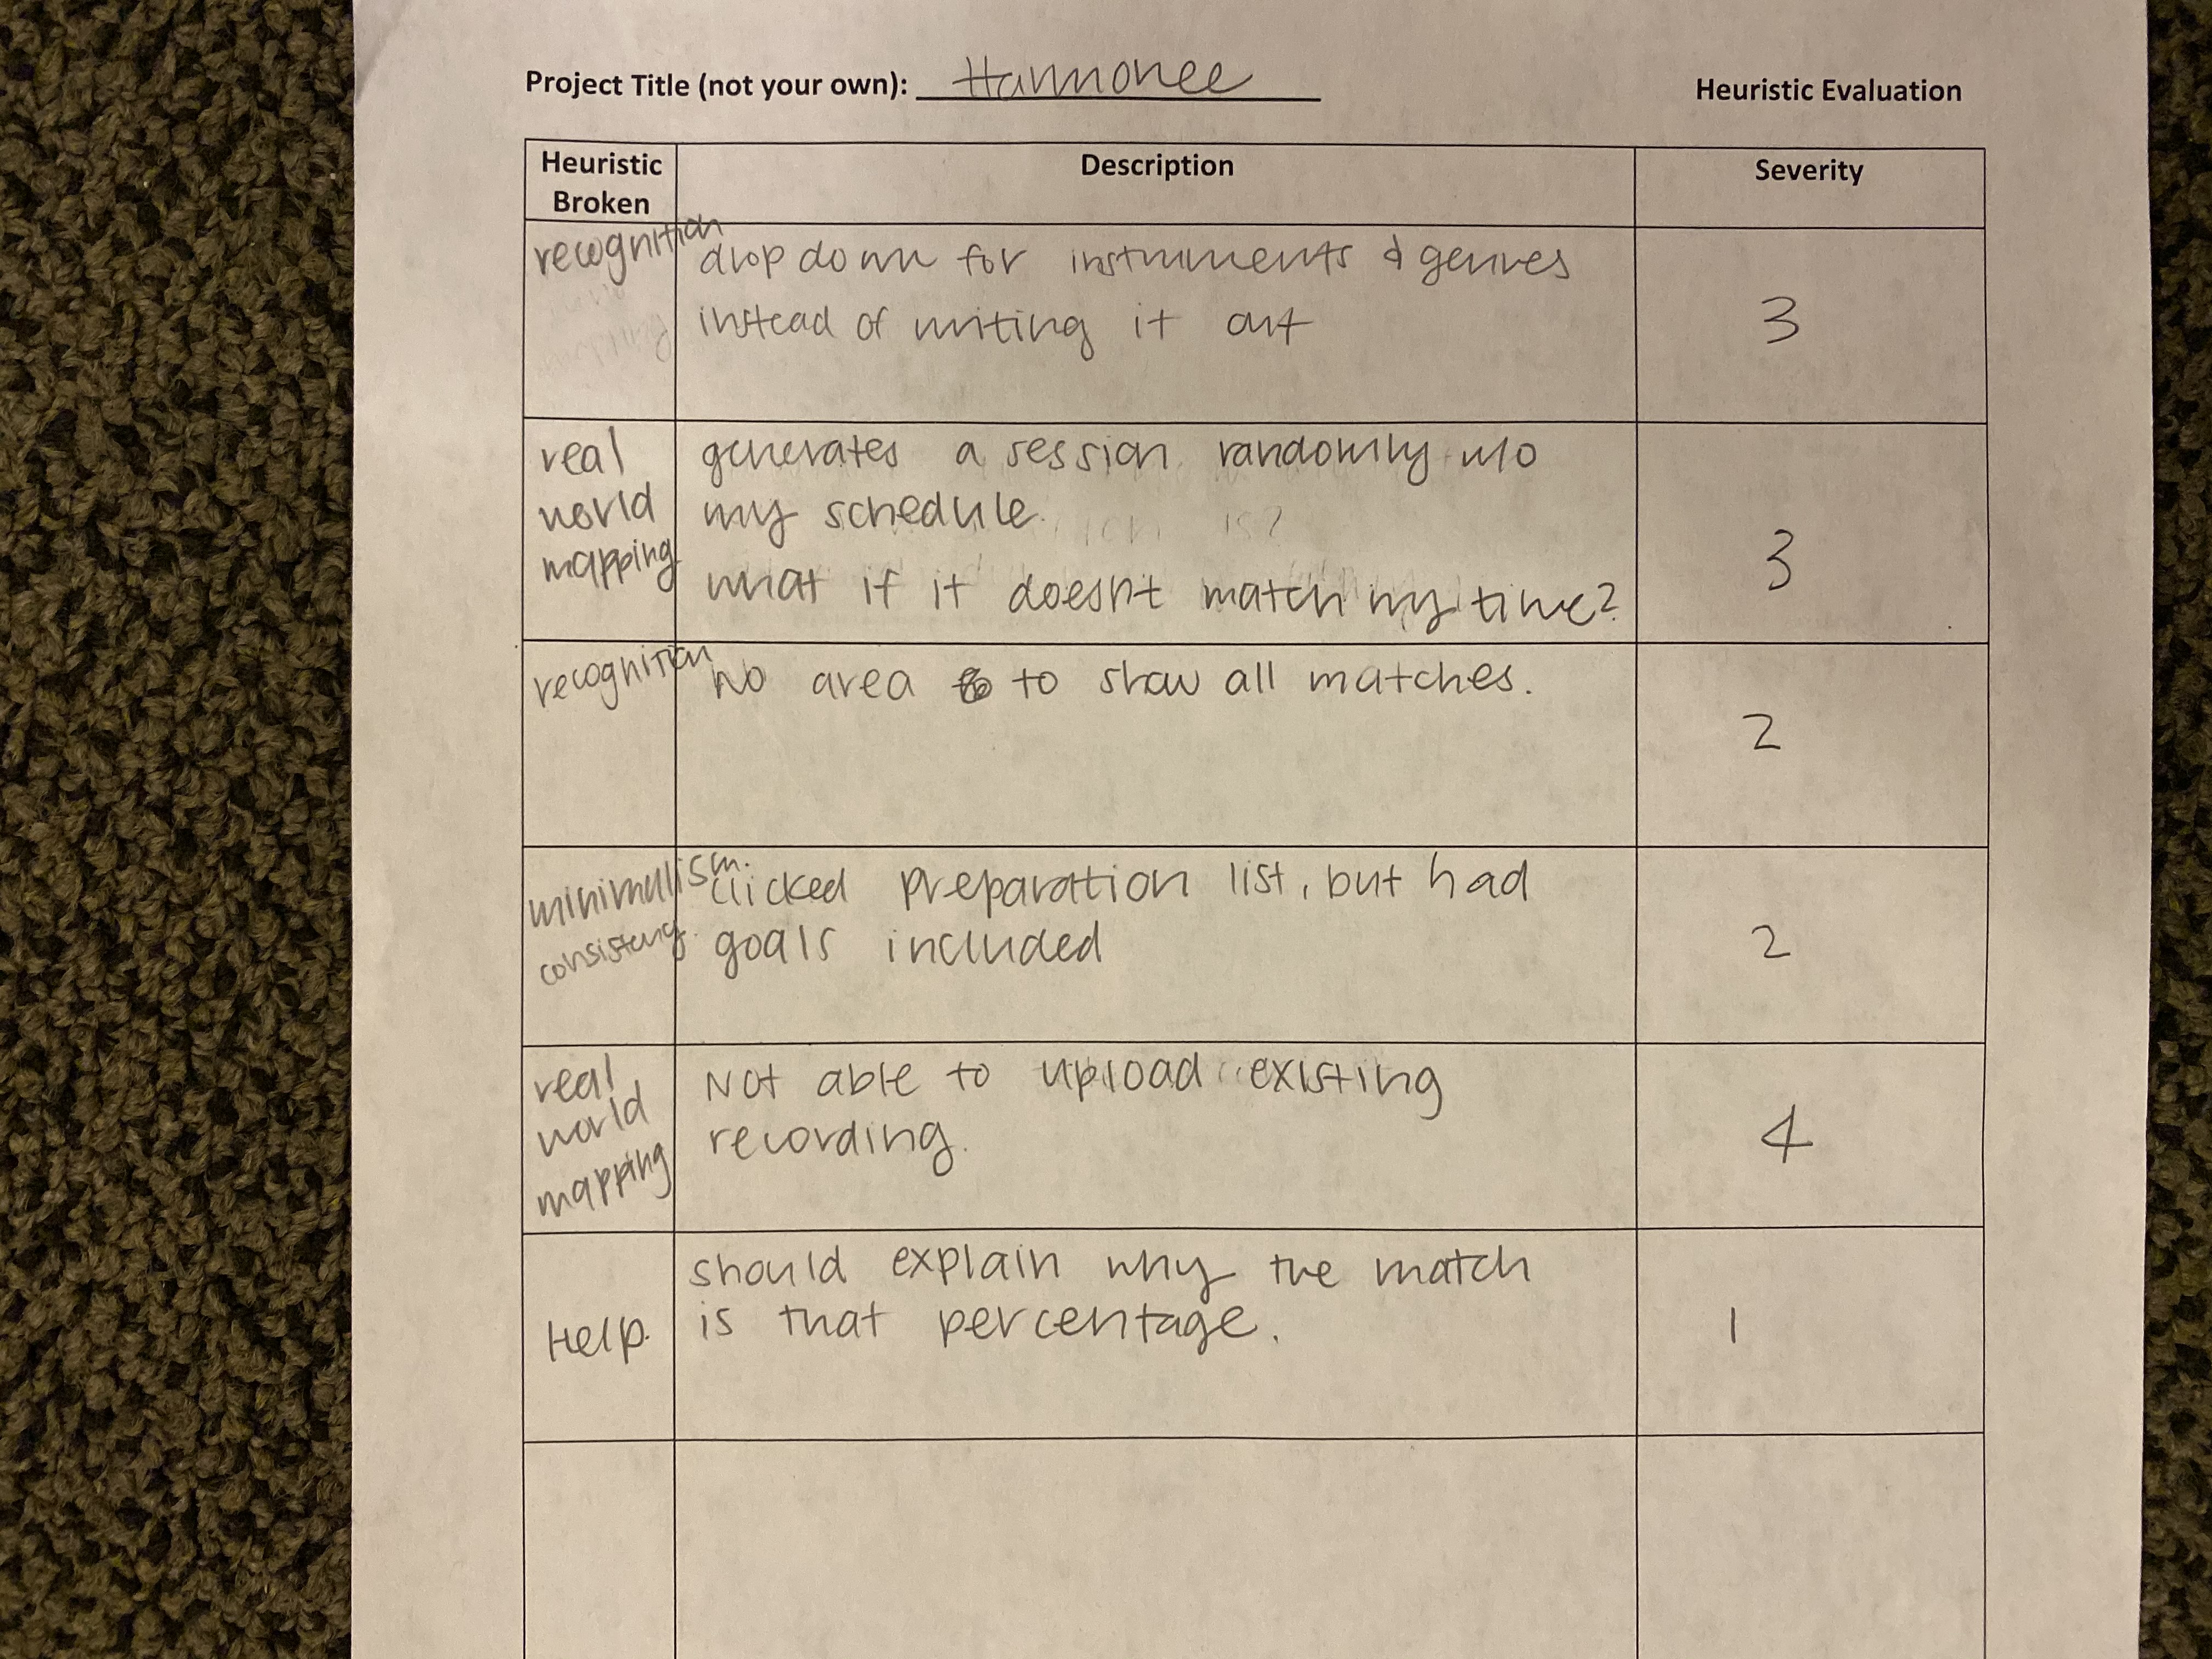 Project Title (not your own): Harmonee
Heuristic Evaluation
Heuristic Broken
Description
Severity
recognition
drop down for instruments & genres
instead of writing it out
3
real
world
mapping
generates a session randomly w/o
my schedule.
what if it doesnt match my time?
3
recognition
no area to show all matches.
2
minimalism.
consistency
clicked preparation list, but had
goals included
2
real
world
mapping
Not able to upload existing
recording.
4
Help.
should explain why the match
is that percentage.
1